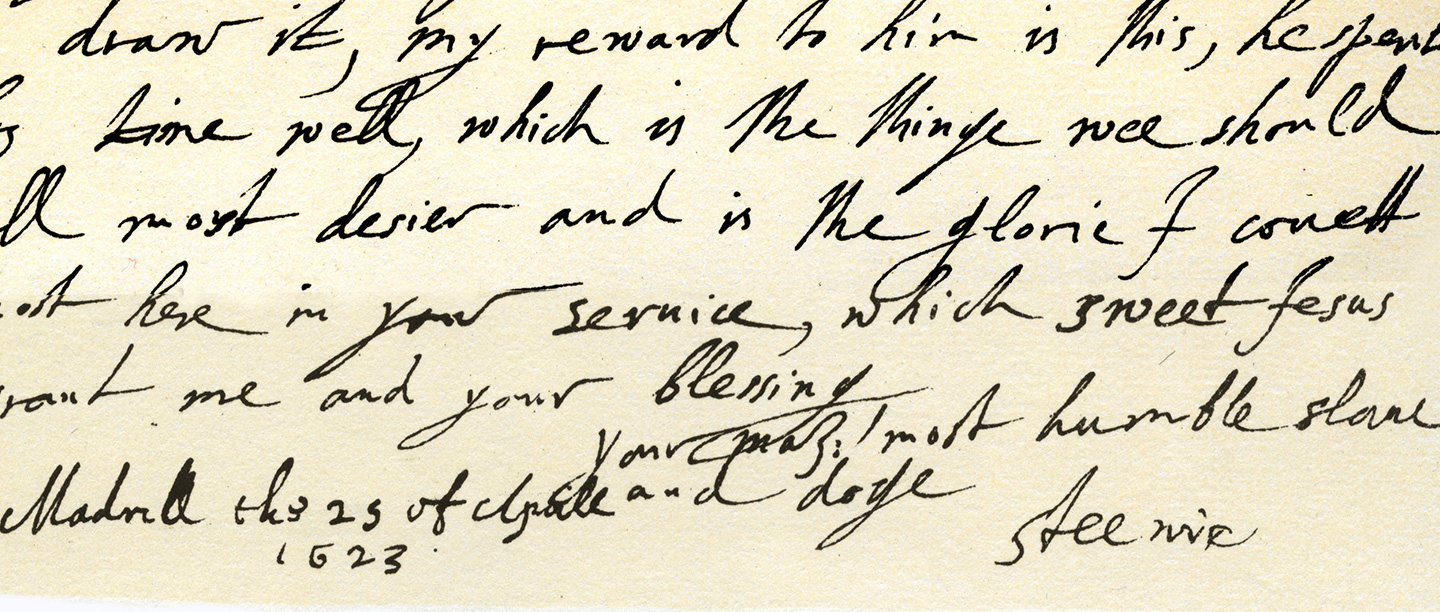 draw it, my reward to him is this, he spent
time well, which is the thinge wee should
ll most desier and is the glorie I covett
ost here in your service, which sweet Jesus
rant me and your blessing
your maj: most humble slave
Madrill the 25 of Aprille and doge
1623 Steenie